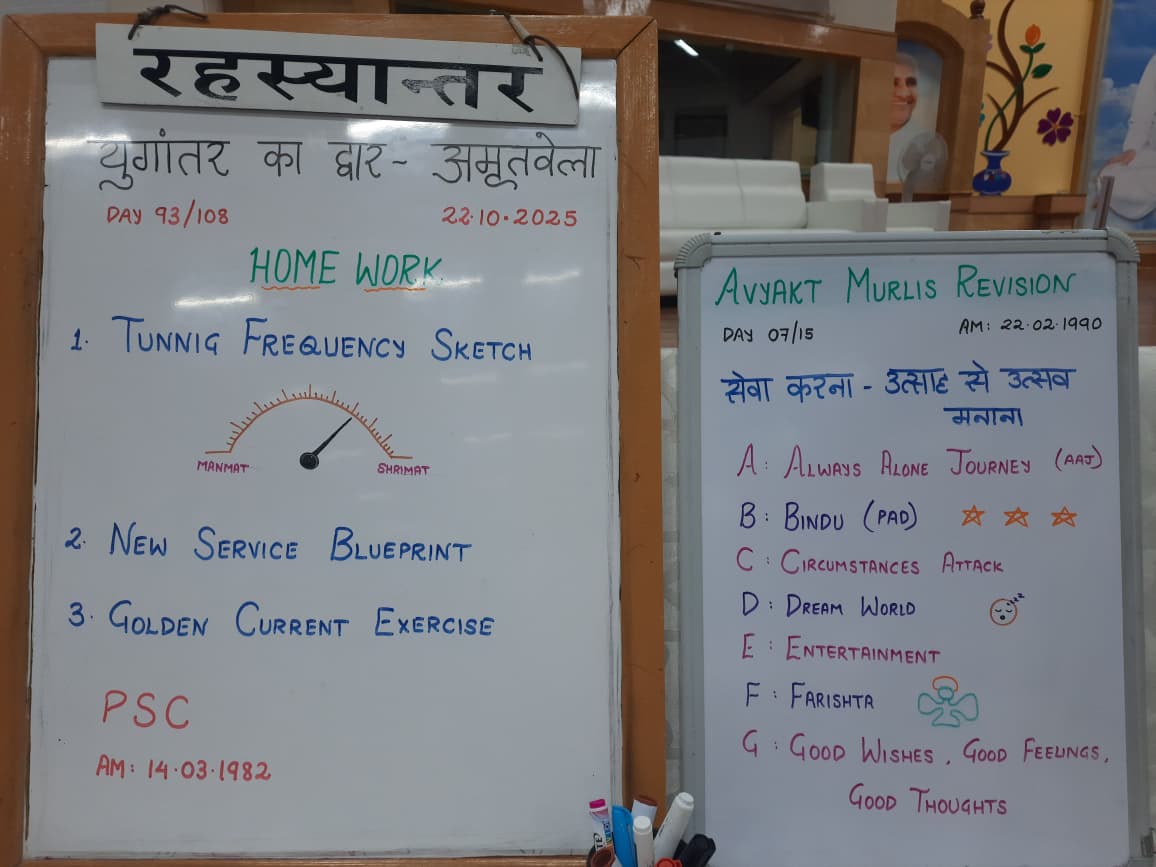 रहस्यान्तर
युगांतर का द्वार - अमृतवेला
DAY 93/108
22.10.2025
HOME WORK
1. TUNNIG FREQUENCY SKETCH
MANMAT
SHRIMAT
2. NEW SERVICE BLUEPRINT
3. GOLDEN CURRENT EXERCISE
PSC
AM: 14.03.1982
AVYAKT MURLIS REVISION
DAY 07/15
AM: 22.02.1990
सेवा करना - उत्साह से उत्सव
मनाना
A: ALWAYS ALONE JOURNEY (AAJ)
B: BINDU (PAD)
C: CIRCUMSTANCES ATTACK
D: DREAM WORLD
E: ENTERTAINMENT
F: FARISHTA
G: GOOD WISHES, GOOD FEELINGS,
GOOD THOUGHTS